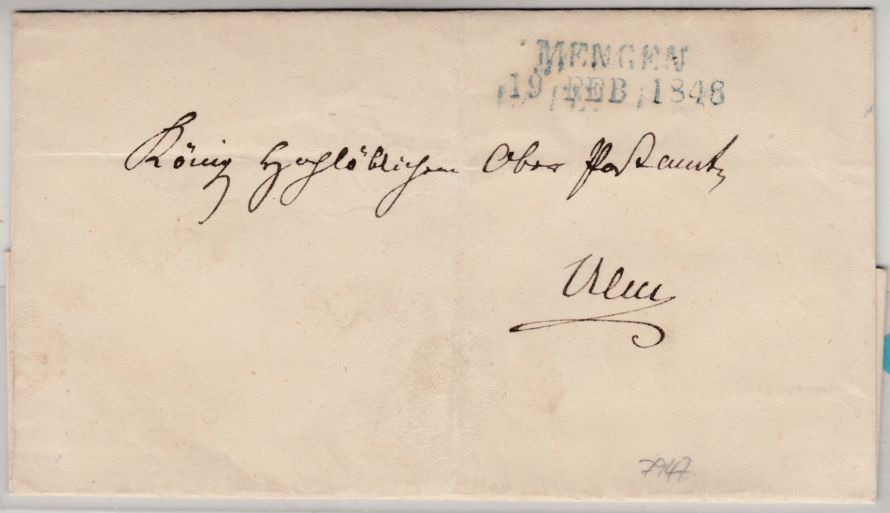 MENGEN
19 FEB 1848
König Hochlöblichem Ober Postamt
Ulm